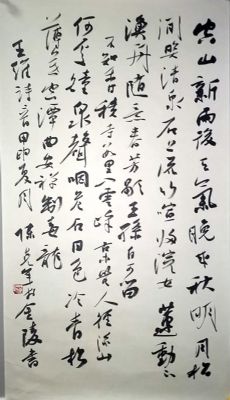 空山新雨後天氣晚來秋明月松
間照清泉石上流竹喧歸浣女蓮動下
漁舟隨意春芳歇王孫自可留
不知香積寺數里入雲峰古木無人徑深山
何處鐘泉聲咽危石日色冷青松
薄暮空潭曲安禪制毒龍
王維詩 夏月 陳 於金陵書